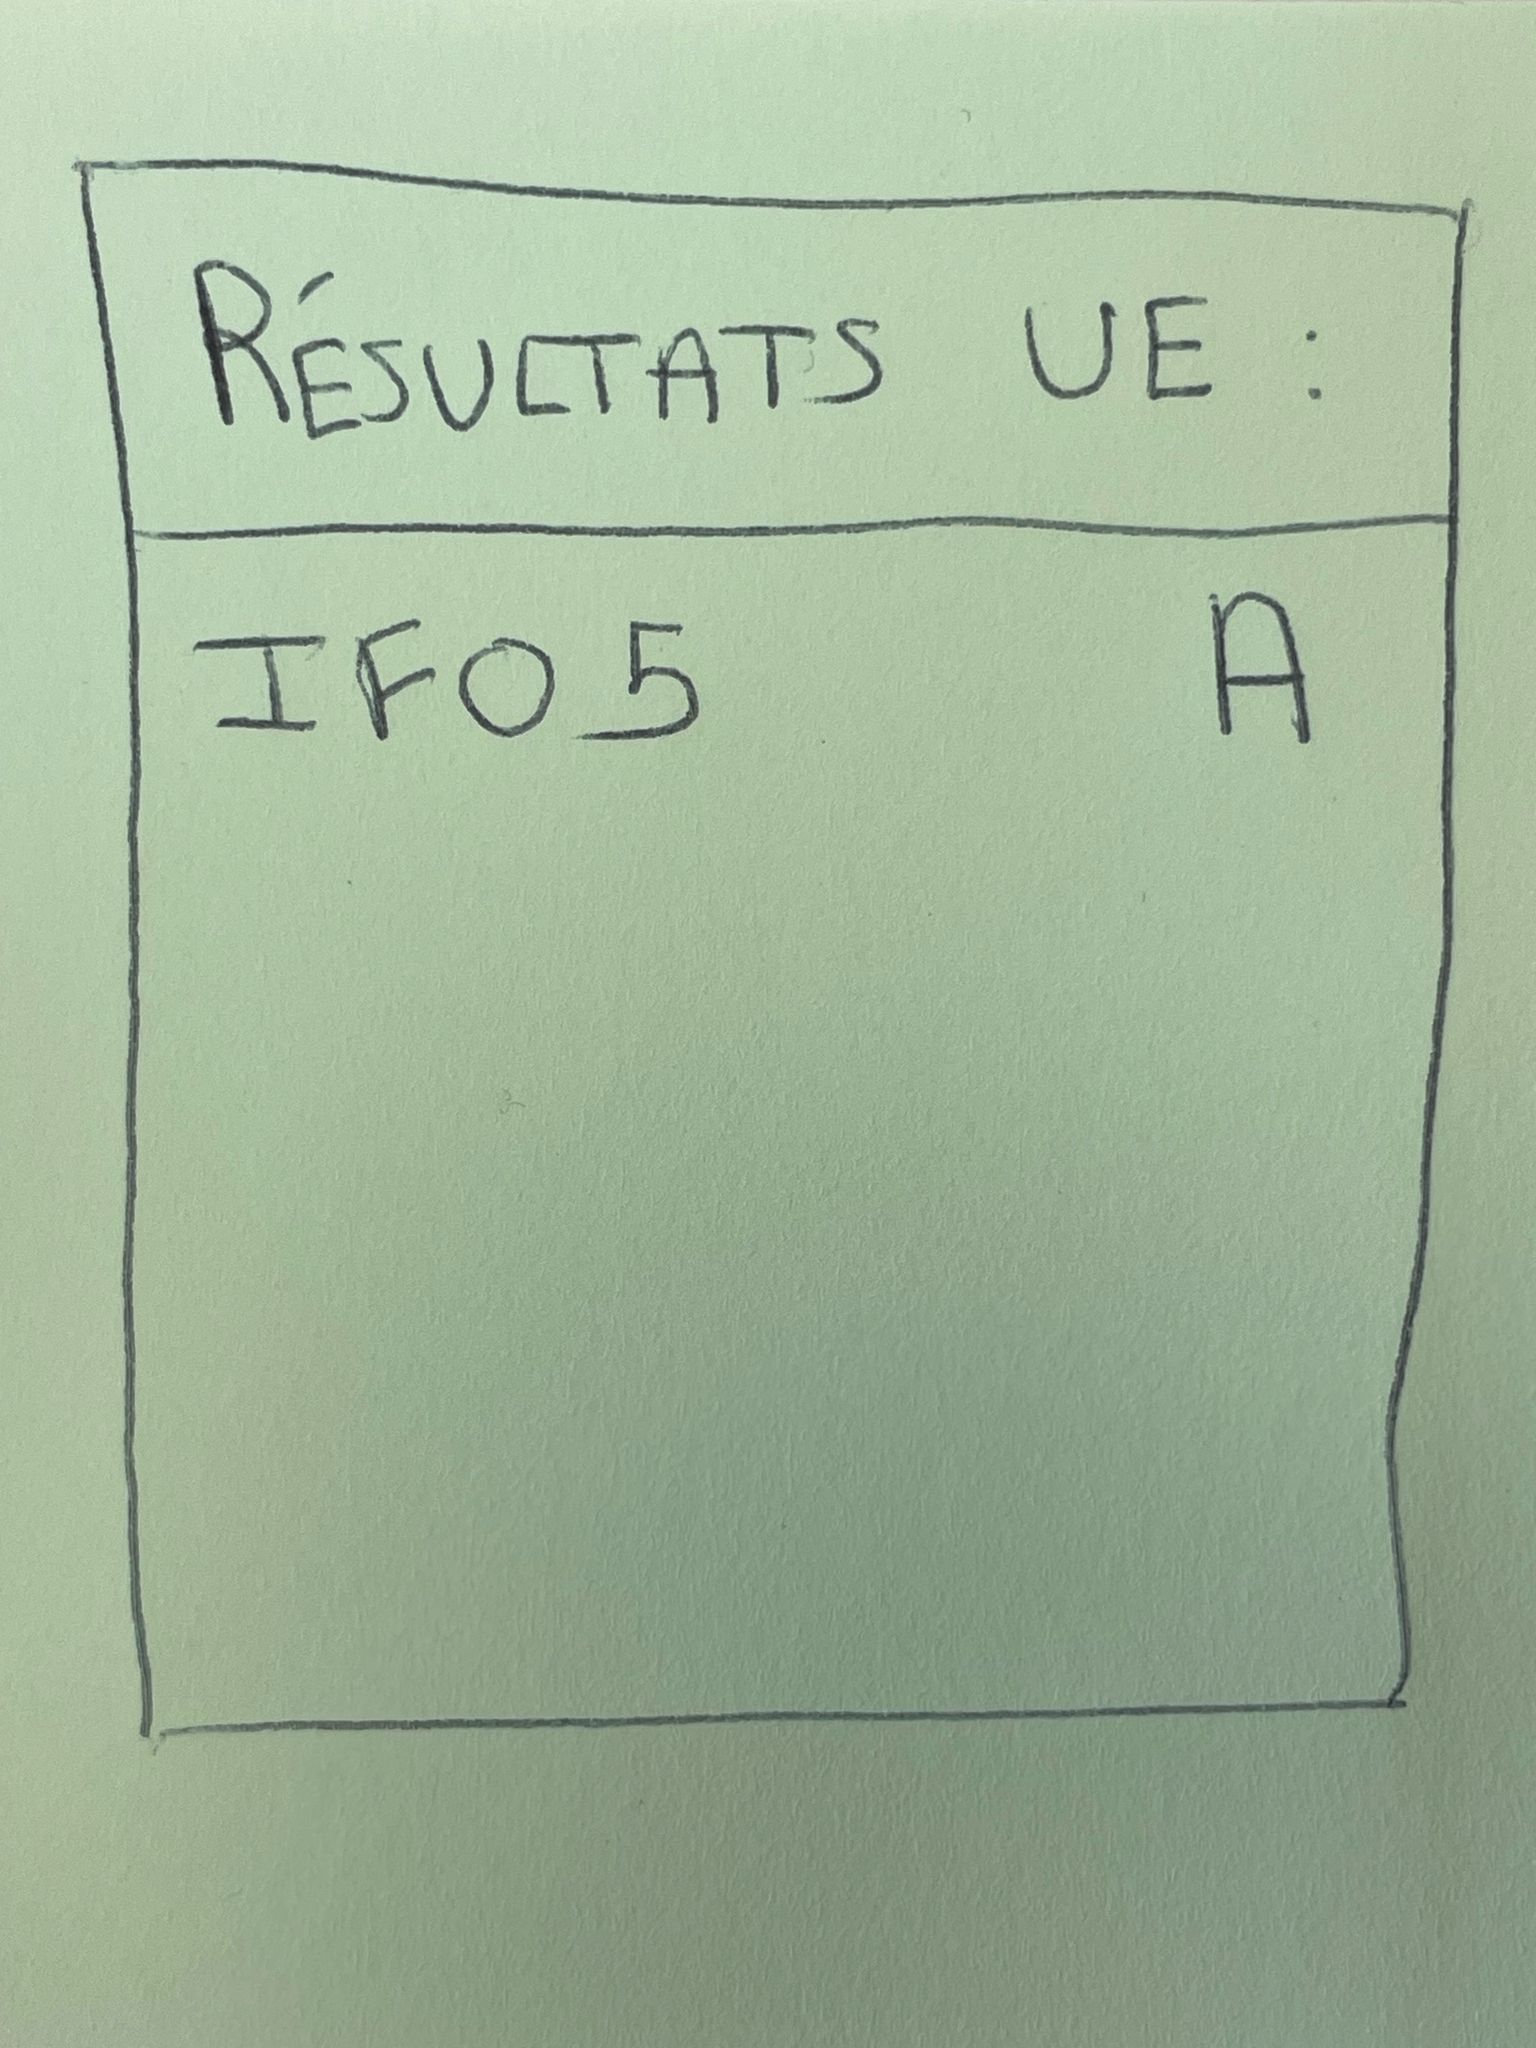 RÉSULTATS UE :
IF05 A